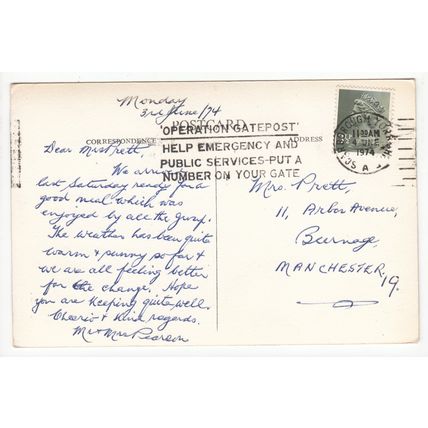 Monday
3rd June/74
POSTCARD
CORRESPONDENCE
ADDRESS
'OPERATION GATEPOST'
HELP EMERGENCY AND
PUBLIC SERVICES-PUT A
NUMBER ON YOUR GATE
11 AM
4 JUNE
1974
A
Dear Mrs Prett
We arrived
last Saturday ready for a
good meal which was
enjoyed by all the group.
The weather has been quite
warm & sunny so far &
we are all feeling better
for the change. Hope
you are keeping quite well.
Cheerio & kind regards.
Mr & Mrs Pearson
Mrs. Prett,
11, Arbor Avenue,
Burnage,
MANCHESTER,
19.